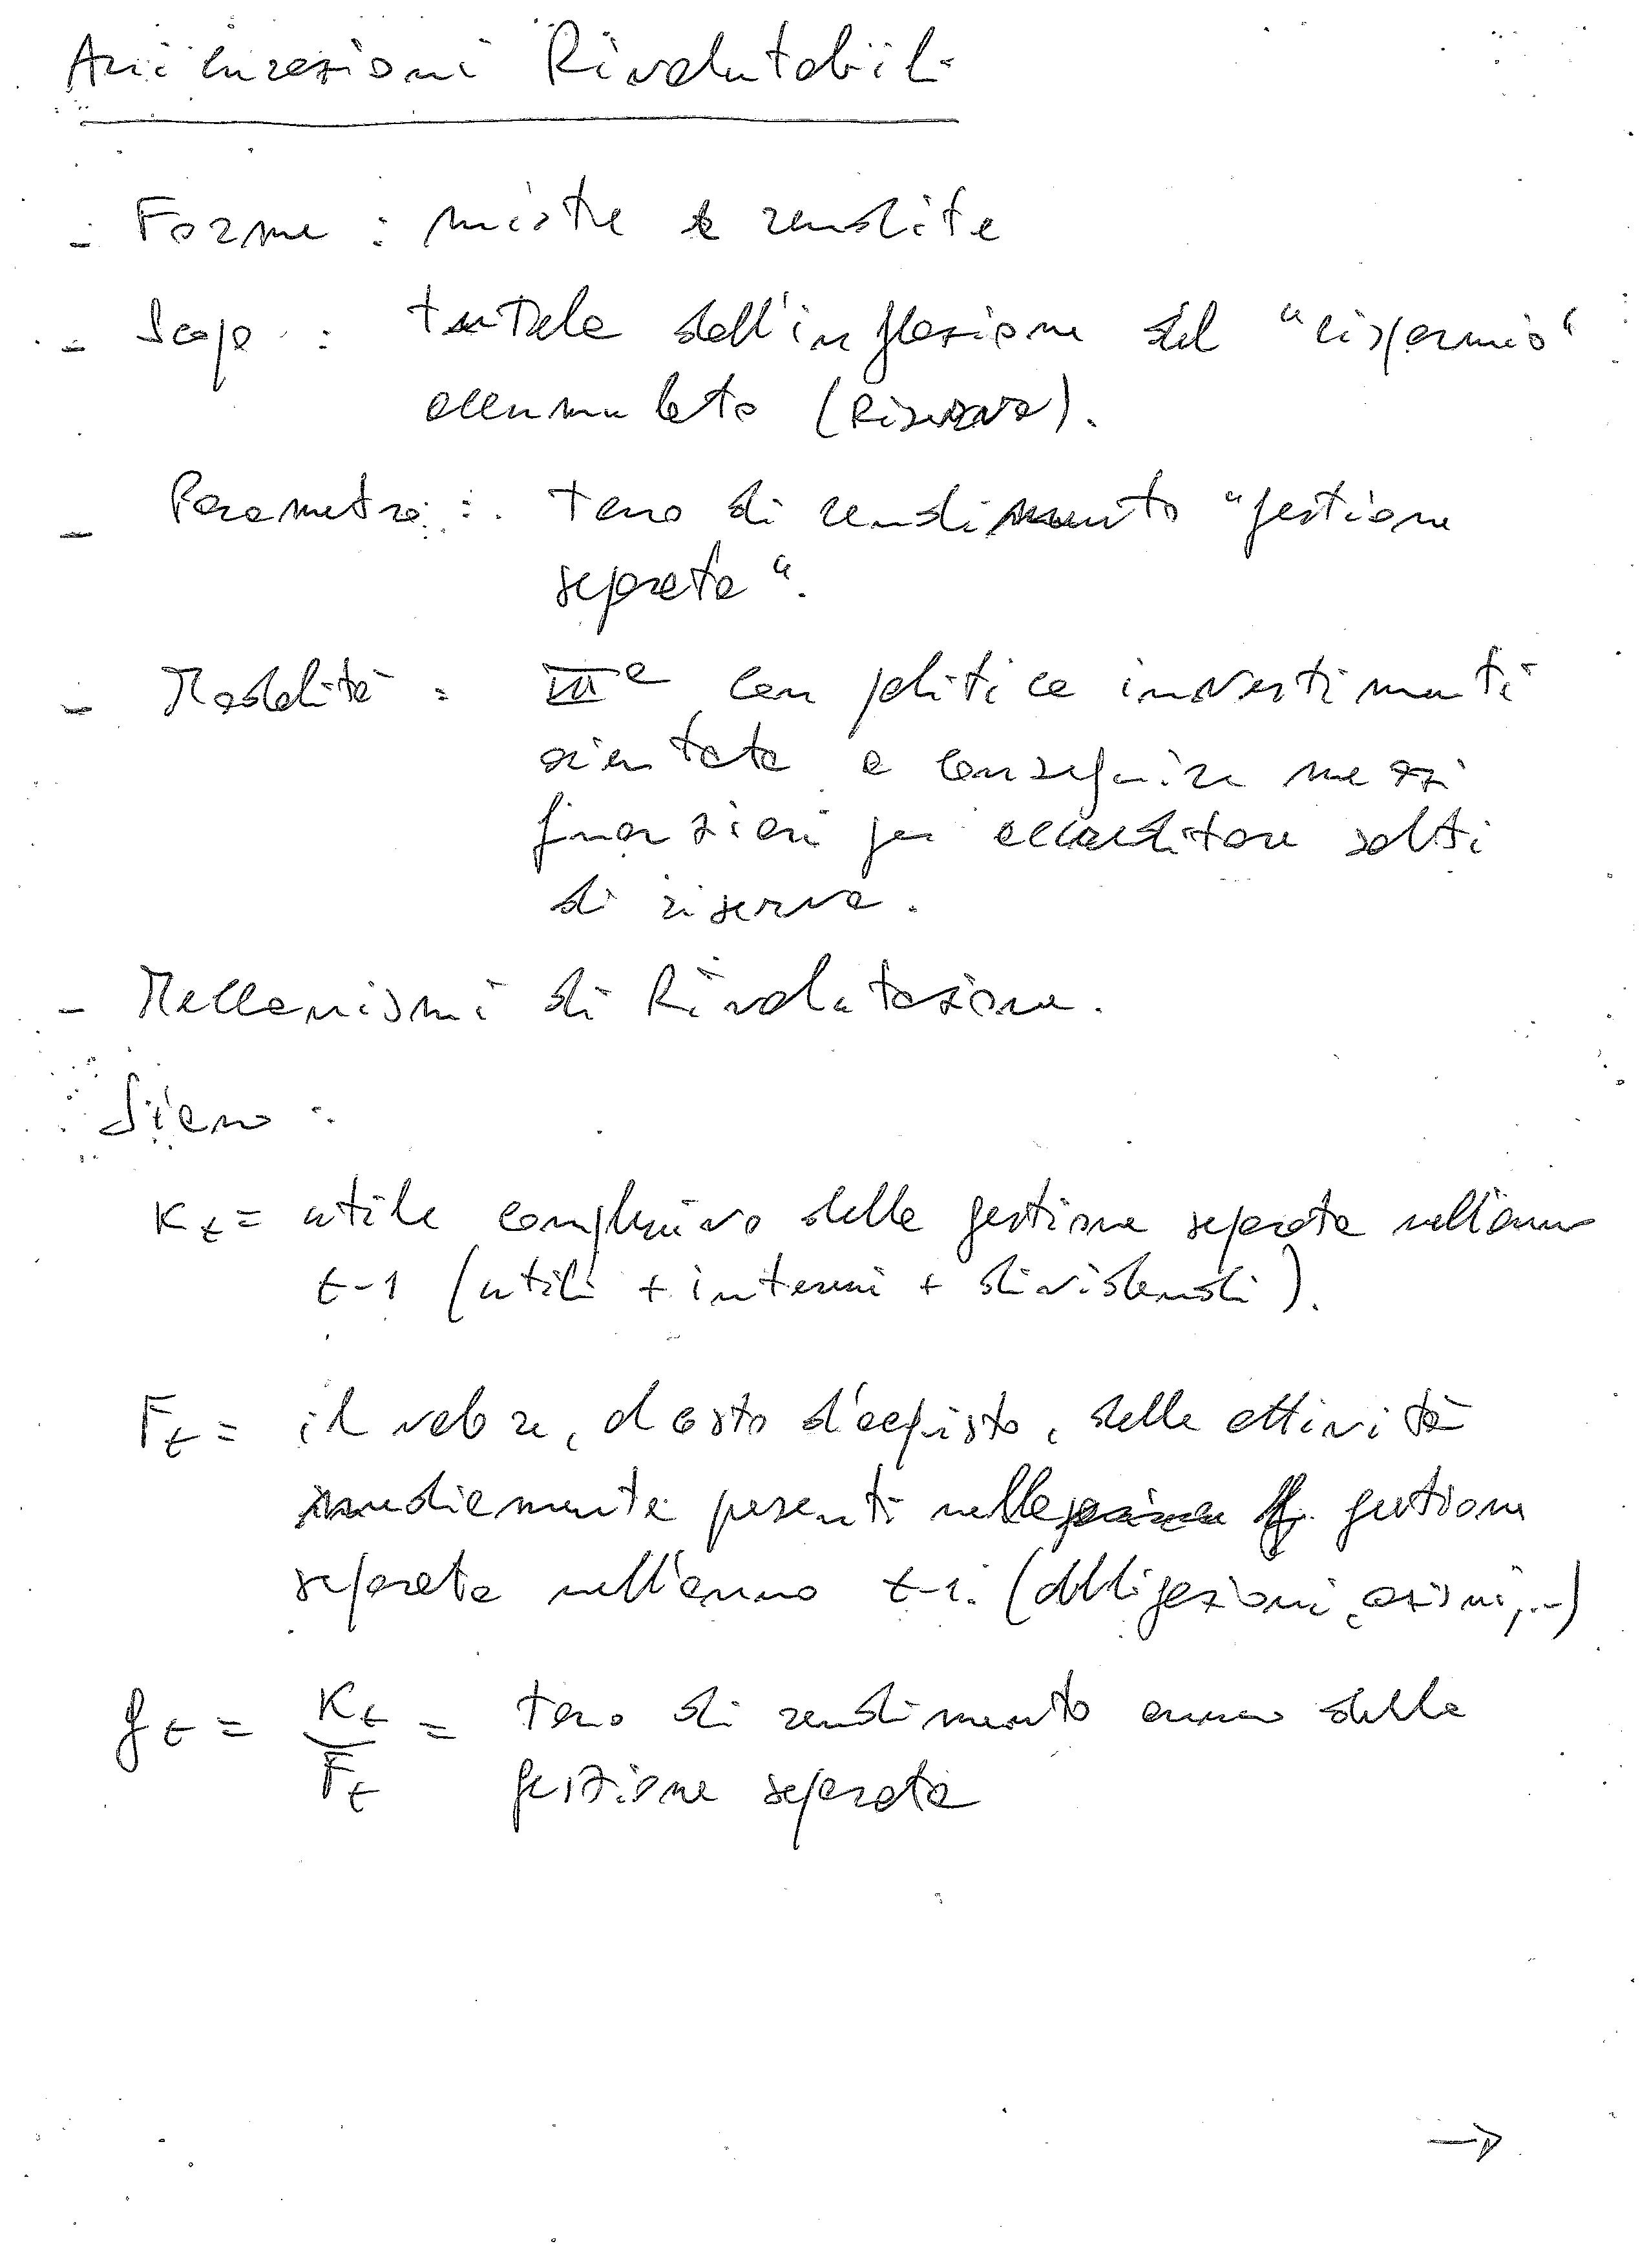 Assicurazioni Rivalutabili
- Forme : miste e rendite
- Scopo : tutela dall'inflazione del "risparmio"
accumulato (Riserva).
- Parametro : tasso di rendimento "gestione
separata".
- Modalità : IIIa con politica investimenti
orientata a conseguire mezzi
finanziari per accreditare salti
di riserva.
- Meccanismi di Rivalutazione.
Siano :
Kt = utile complessivo della gestione separata nell'anno
t-1 (utili + interessi + dividendi).
Ft = il valore, al costo d'acquisto, delle attività
mediamente presenti nella gestione
separata nell'anno t-1. (obbligazioni, azioni, ..)
gt = Kt / Ft = tasso di rendimento annuo della
gestione separata
→